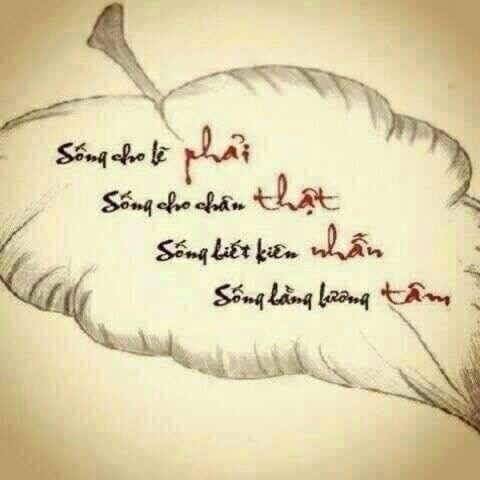 Sống cho lẽ phải
Sống cho chân thật
Sống biết kiên nhẫn
Sống bằng lương tâm